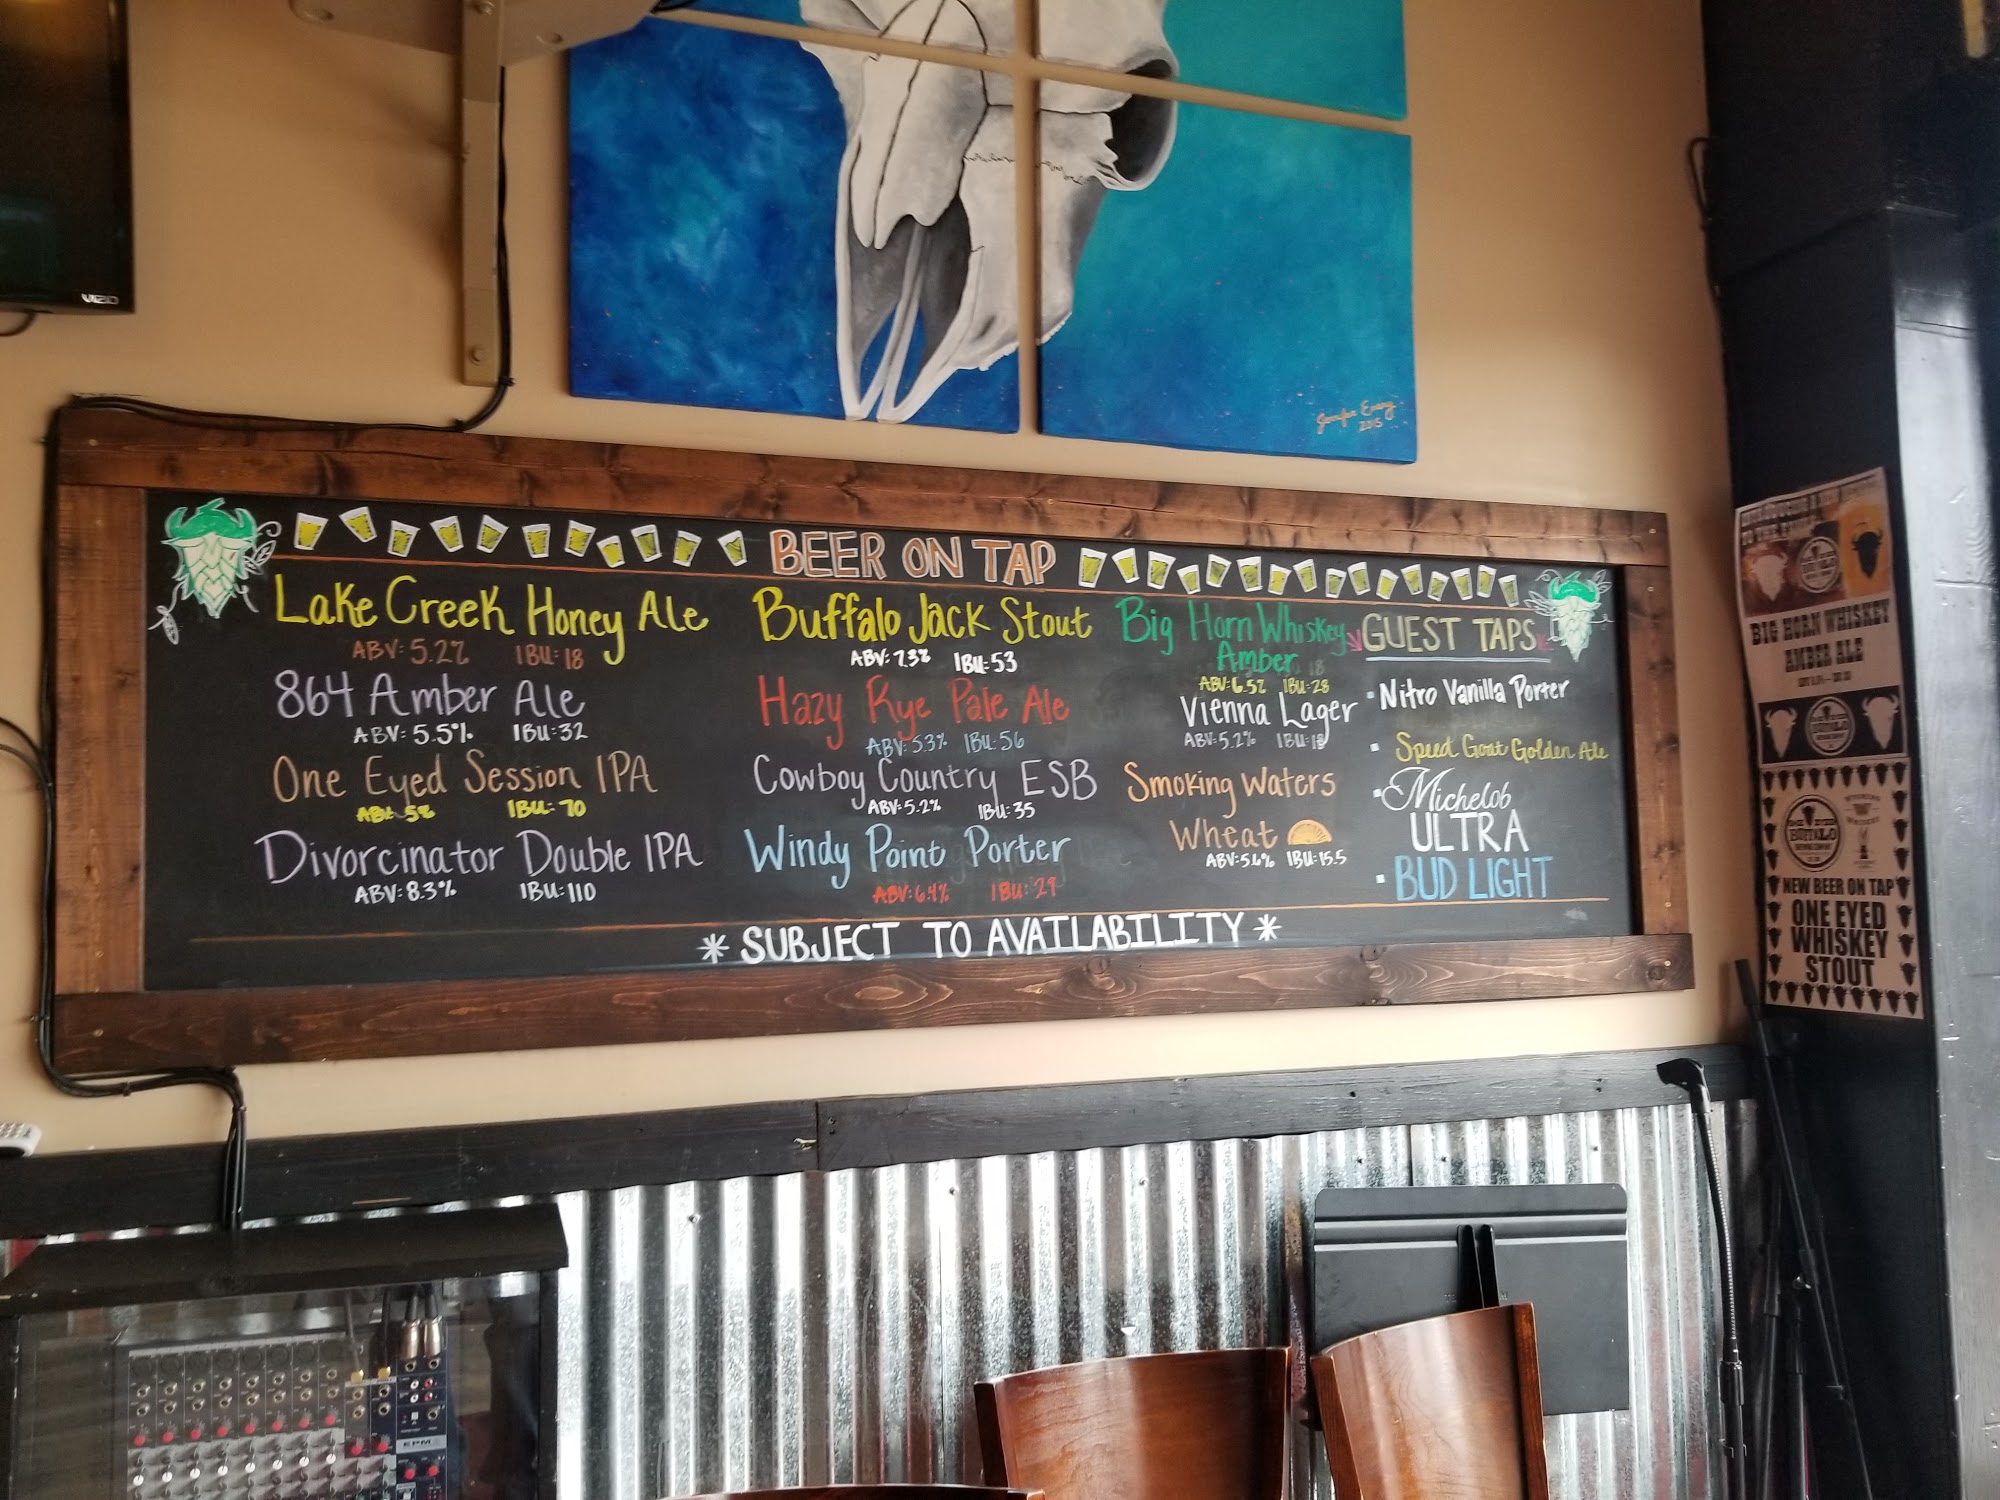 VIZIO
Jennifer Emery
2015
BEER ON TAP
Lake Creek Honey Ale
ABV: 5.2% IBU: 18
864 Amber Ale
ABV: 5.5% IBU: 32
One Eyed Session IPA
ABV: 5% IBU: 70
Divorcinator Double IPA
ABV: 8.3% IBU: 110
Buffalo Jack Stout
ABV: 7.3% IBU: 53
Hazy Rye Pale Ale
ABV: 5.3% IBU: 56
Cowboy Country ESB
ABV: 5.2% IBU: 35
Windy Point Porter
ABV: 6.4% IBU: 29
Big Horn Whiskey
Amber
ABV: 6.5% IBU: 28
Vienna Lager
ABV: 5.2% IBU: 18
Smoking Waters
Wheat
ABV: 5.6% IBU: 15.5
GUEST TAPS
Nitro Vanilla Porter
Speed Goat Golden Ale
Michelob
ULTRA
BUD LIGHT
* SUBJECT TO AVAILABILITY *
BIG HORN WHISKEY
AMBER ALE
ONE EYED
BUFFALO
NEW BEER ON TAP
ONE EYED
WHISKEY
STOUT
EPM